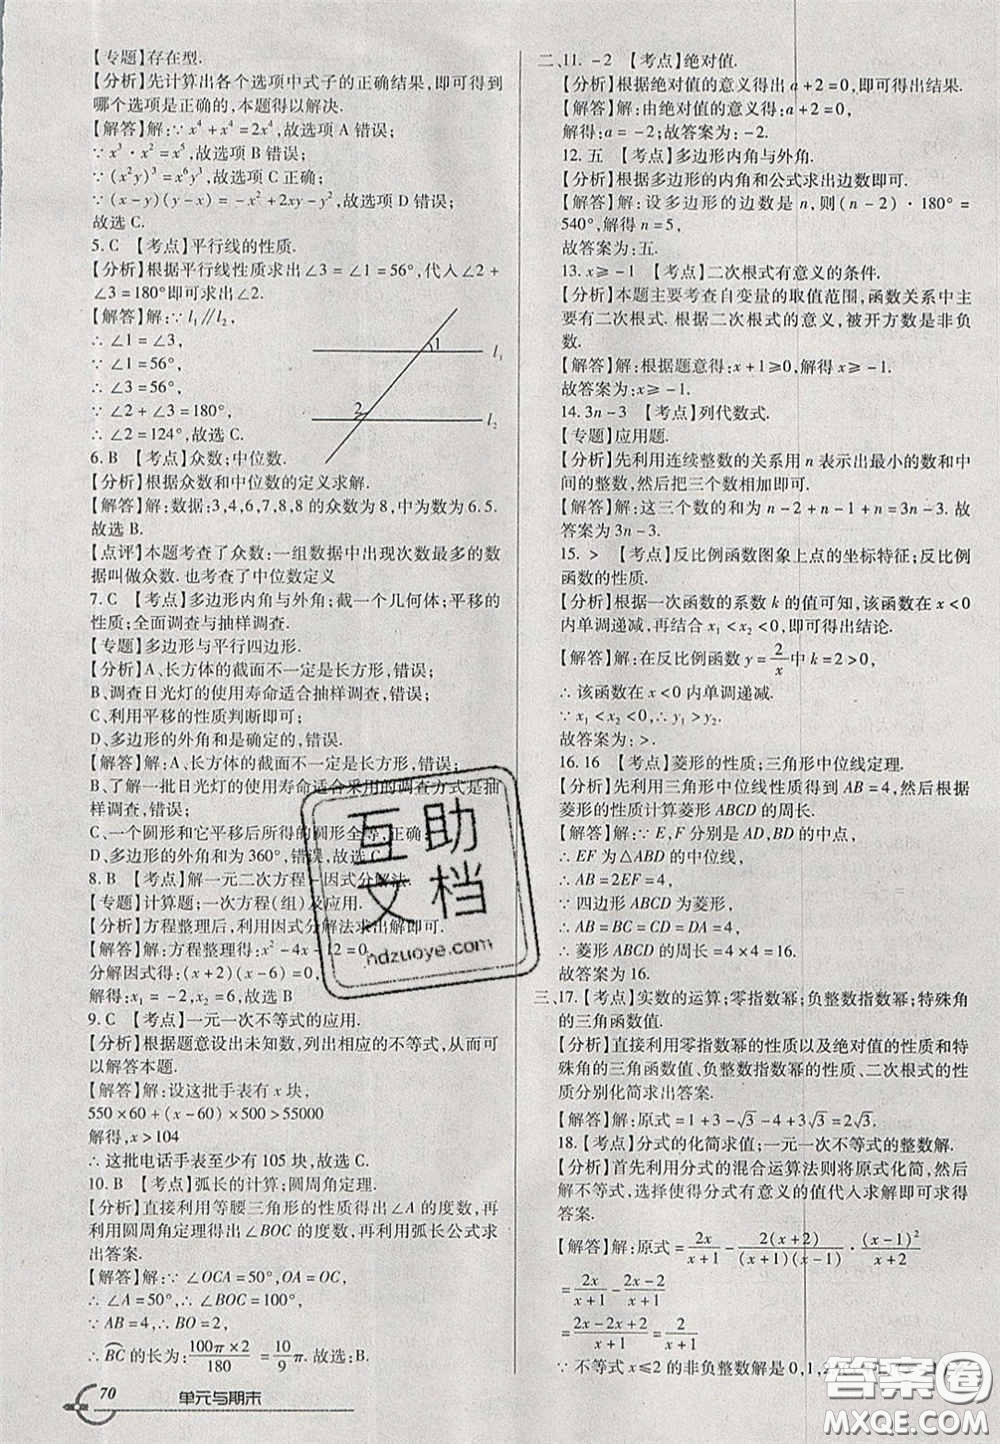 【专题】存在型.
【分析】先计算出各个选项中式子的正确结果,即可得到
哪个选项是正确的,本题得以解决.
【解答】解:∵x⁴+x⁴=2x⁴,故选项 A 错误;
∵x³·x²=x⁵,故选项 B 错误;
∵(x²y)³=x⁶y³,故选项 C 正确;
∵(x-y)(y-x)=-x²+2xy-y²,故选项 D 错误;
故选 C.
5. C 【考点】平行线的性质.
【分析】根据平行线性质求出∠3=∠1=56°,代入∠2+
∠3=180°即可求出∠2.
【解答】解:∵l₁∥l₂,
∴∠1=∠3,
∵∠1=56°,
∴∠3=56°,
∵∠2+∠3=180°,
∴∠2=124°,故选 C.
1
l₁
2
l₂
6. B 【考点】众数;中位数.
【分析】根据众数和中位数的定义求解.
【解答】解:数据:3,4,6,7,8,8 的众数为 8,中为数为 6.5.
故选 B.
【点评】本题考查了众数:一组数据中出现次数最多的数
据叫做众数. 也考查了中位数定义
7. C 【考点】多边形内角与外角;截一个几何体;平移的
性质;全面调查与抽样调查.
【专题】多边形与平行四边形.
【分析】A、长方体的截面不一定是长方形,错误;
B、调查日光灯的使用寿命适合抽样调查,错误;
C、利用平移的性质判断即可;
D、多边形的外角和是确定的,错误.
【解答】解:A、长方体的截面不一定是长方形,错误;
B、了解一批日光灯的使用寿命适合采用的调查方式是抽
样调查,错误;
C、一个圆形和它平移后所得的圆形全等,正确;
D、多边形的外角和为 360°,错误,故选 C.
8. B 【考点】解一元二次方程-因式分解法.
【专题】计算题;一次方程(组)及应用.
【分析】方程整理后,利用因式分解法求出解即可.
【解答】解:方程整理得:x²-4x-12=0,
分解因式得:(x+2)(x-6)=0,
解得:x₁=-2,x₂=6,故选 B
9. C 【考点】一元一次不等式的应用.
【分析】根据题意设出未知数,列出相应的不等式,从而可
以解答本题.
【解答】解:设这批手表有 x 块,
550×60+(x-60)×500>55000
解得,x>104
∴这批电话手表至少有 105 块,故选 C.
10. B 【考点】弧长的计算;圆周角定理.
【分析】直接利用等腰三角形的性质得出∠A 的度数,再
利用圆周角定理得出∠BOC 的度数,再利用弧长公式求
出答案.
【解答】解:∵∠OCA=50°,OA=OC,
∴∠A=50°,∴∠BOC=100°,
∵AB=4,∴BO=2,
∴B͡C的长为:100π×2/180=10/9π. 故选:B.
70 单元与期末
二、11. -2 【考点】绝对值.
【分析】根据绝对值的意义得出 a+2=0,即可得出结果.
【解答】解:由绝对值的意义得:a+2=0,
解得:a=-2;故答案为:-2.
12. 五 【考点】多边形内角与外角.
【分析】根据多边形的内角和公式求出边数即可.
【解答】解:设多边形的边数是 n,则(n-2)·180°=
540°,解得 n=5,
故答案为:五.
13. x≥-1 【考点】二次根式有意义的条件.
【分析】本题主要考查自变量的取值范围,函数关系中主
要有二次根式. 根据二次根式的意义,被开方数是非负
数.
【解答】解:根据题意得:x+1≥0,解得:x≥-1.
故答案为:x≥-1.
14. 3n-3 【考点】列代数式.
【专题】应用题.
【分析】先利用连续整数的关系用 n 表示出最小的数和中
间的整数,然后把三个数相加即可.
【解答】解:这三个数的和为 n-2+n-1+n=3n-3. 故
答案为 3n-3.
15. > 【考点】反比例函数图象上点的坐标特征;反比例
函数的性质.
【分析】根据一次函数的系数 k 的值可知,该函数在 x<0
内单调递减,再结合 x₁<x₂<0,即可得出结论.
【解答】解:在反比例函数 y=2/x中 k=2>0,
∴该函数在 x<0 内单调递减.
∵x₁<x₂<0,∴y₁>y₂.
故答案为:>.
16. 16 【考点】菱形的性质;三角形中位线定理.
【分析】先利用三角形中位线性质得到 AB=4,然后根据
菱形的性质计算菱形 ABCD 的周长.
【解答】解:∵E,F 分别是 AD,BD 的中点,
∴EF 为△ABD 的中位线,
∴AB=2EF=4,
∵四边形 ABCD 为菱形,
∴AB=BC=CD=DA=4,
∴菱形 ABCD 的周长=4×4=16.
故答案为 16.
三、17.【考点】实数的运算;零指数幂;负整数指数幂;特殊角
的三角函数值.
【分析】直接利用零指数幂的性质以及绝对值的性质和特
殊角的三角函数值、负整数指数幂的性质、二次根式的性
质分别化简求出答案.
【解答】解:原式=1+3-√3-4+3√3=2√3.
18.【考点】分式的化简求值;一元一次不等式的整数解.
【分析】首先利用分式的混合运算法则将原式化简,然后
解不等式,选择使得分式有意义的值代入求解即可求得
答案.
【解答】解:原式=2x/(x+1)-2(x+2)/((x+1)(x-1))·(x-1)²/(x+2)
=2x/(x+1)-(2x-2)/(x+1)
=(2x-2x+2)/(x+1)=2/(x+1)
∵不等式 x≤2 的非负整数解是 0,1,2
互助
文档
hdzuoye.com
答案圈
MXQE.COM